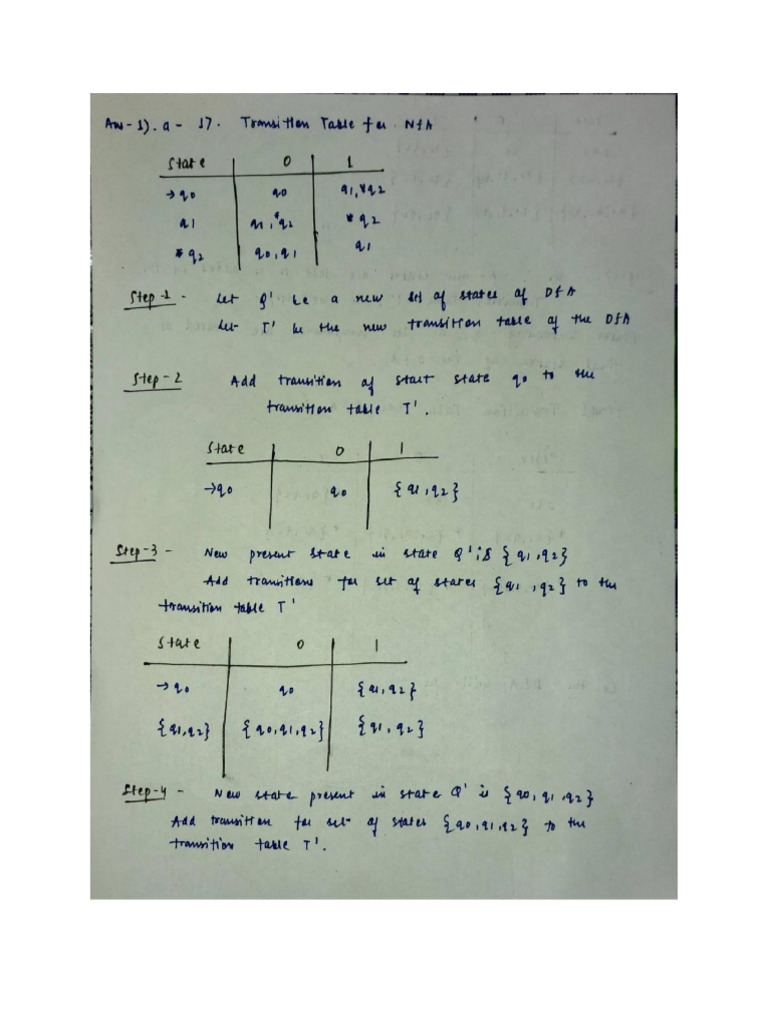 Ans-1).a- 17. Transition Table for NfA
State 0 1
→q0 q0 q1,*q2
q1 q1,*q2 *q2
*q2 q0,q1 q1
Step-1- Let Q' be a new set of states of DfA
Let T' be the new transition table of the DfA
Step-2 Add transition of start state q0 to the
transition table T'.
State 0 1
→q0 q0 {q1,q2}
Step-3- New present state in state Q' is {q1,q2}
Add transitions for set of states {q1,q2} to the
transition table T'
State 0 1
→q0 q0 {q1,q2}
{q1,q2} {q0,q1,q2} {q1,q2}
Step-4- New state present in state Q' is {q0,q1,q2}
Add transition for set of states {q0,q1,q2} to the
transition table T'.